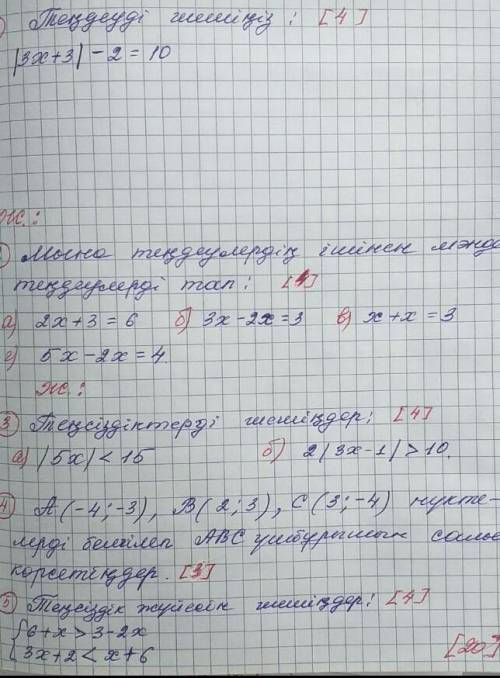 Теңдеуді шешіңіз: [4]
|3x+3| - 2 = 10
Ж.:
Мына теңдеулердің ішінен мәндес
теңдеулерді тап: [1]
а) 2x+3 = 6 б) 3x-2x=3 в) x+x = 3
г) 5x-2x = 4
Ж.:
3 Теңсіздіктерді шешіңдер: [4]
а) |5x| < 15 б) 2|3x-1| > 10.
4 A(-4;-3), B(2;3), C(3;-4) нүкте-
лерді белгілеп ABC үшбұрышын салып
көрсетіңдер. [3]
5 Теңсіздік жүйесін шешіңдер: [4]
{6+x > 3-2x
{3x+2 < x+6
[20]